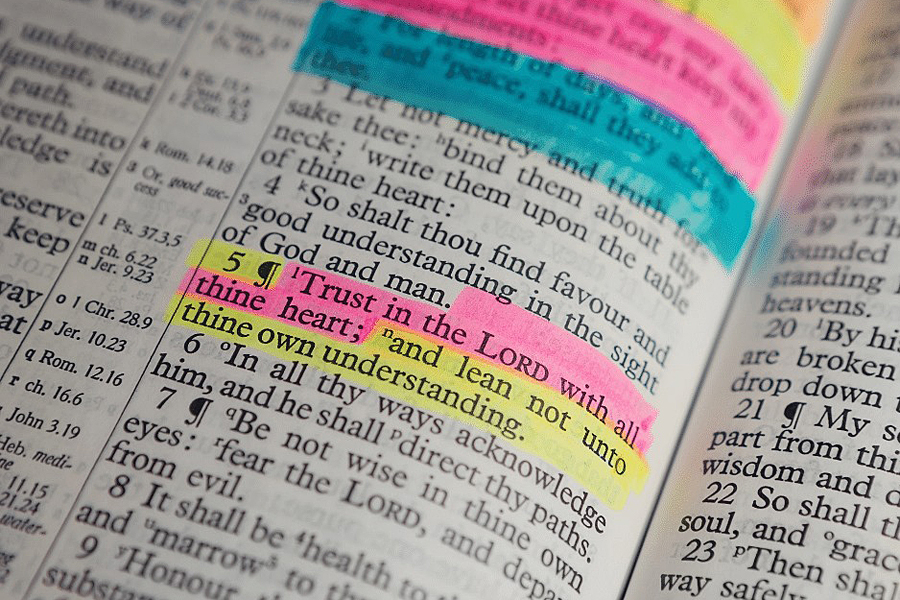 way of
understand
dgment, and
path.
ereth into
ledge is
reserve
keep
way
at
k Rom. 14.18
3 Or, good suc-
cess
l Ps. 37.3,5
m ch. 6.22
n Jer. 9.23
o 1 Chr. 28.9
p Jer. 10.23
q Rom. 12.16
r ch. 16.6
John 3.19
Heb. medi-
11.15
21.24
water-
thine heart keep my
commandments:
2 For length of days, and
life, and peace, shall they add to
thee.
3 Let not mercy and truth for-
sake thee: hbind them about thy
neck; iwrite them upon the table
of thine heart:
4 kSo shalt thou find favour and
3good understanding in the sight
of God and man.
5 ¶ lTrust in the LORD with all
thine heart; nand lean not unto
thine own understanding.
6 oIn all thy ways acknowledge
him, and he shall pdirect thy paths.
7 ¶ qBe not wise in thine own
eyes: rfear the LORD, and depa
from evil.
8 It shall be 4health to
and umarrow5 to the
9 yHonour
substan
that lay
every
19 Th
founded
standing
heavens.
20 lBy his
are broken
drop down
21 ¶ My so
part from thi
wisdom and d
22 So shall th
soul, and ograc
23 pThen shal
way safely